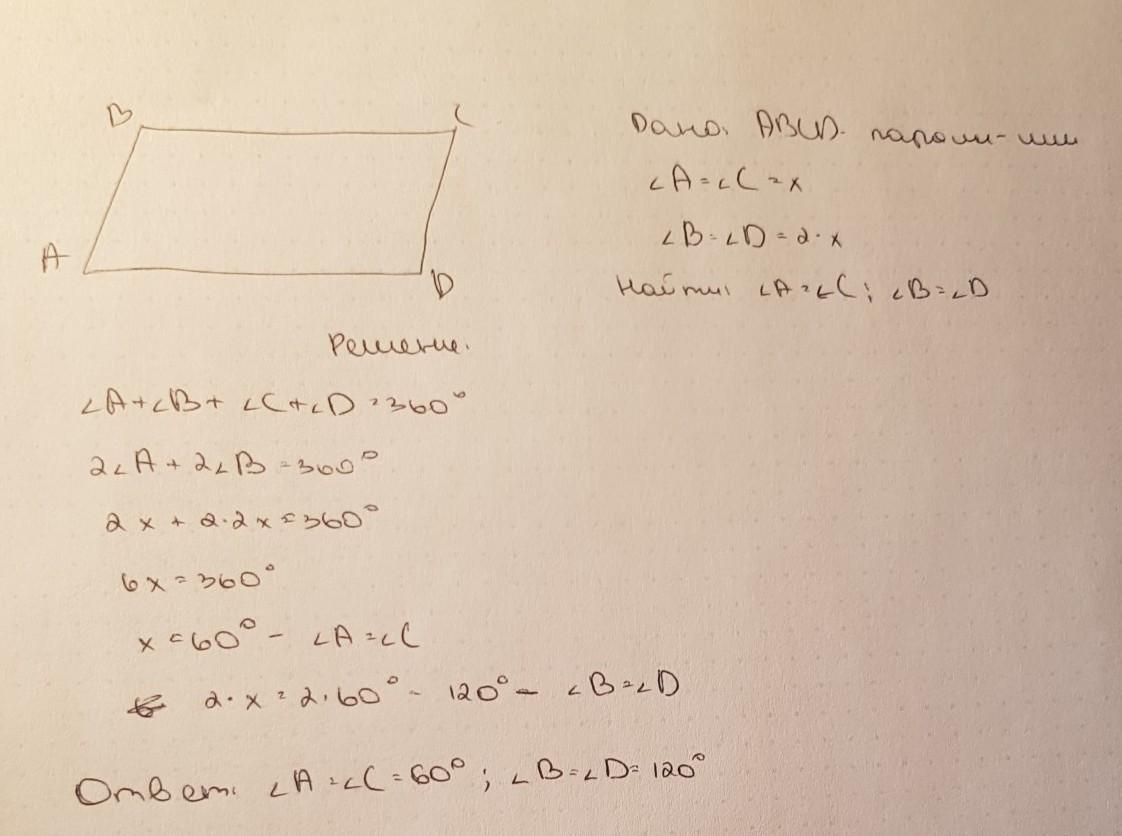 B C
A D
Дано: ABCD - паралл-мм
∠A = ∠C = x
∠B = ∠D = 2·x
Найти: ∠A = ∠C; ∠B = ∠D
Решение.
∠A + ∠B + ∠C + ∠D = 360°
2∠A + 2∠B = 360°
2x + 2·2x = 360°
6x = 360°
x = 60° - ∠A = ∠C
2·x = 2·60° - 120° - ∠B = ∠D
Ответ: ∠A = ∠C = 60°; ∠B = ∠D = 120°